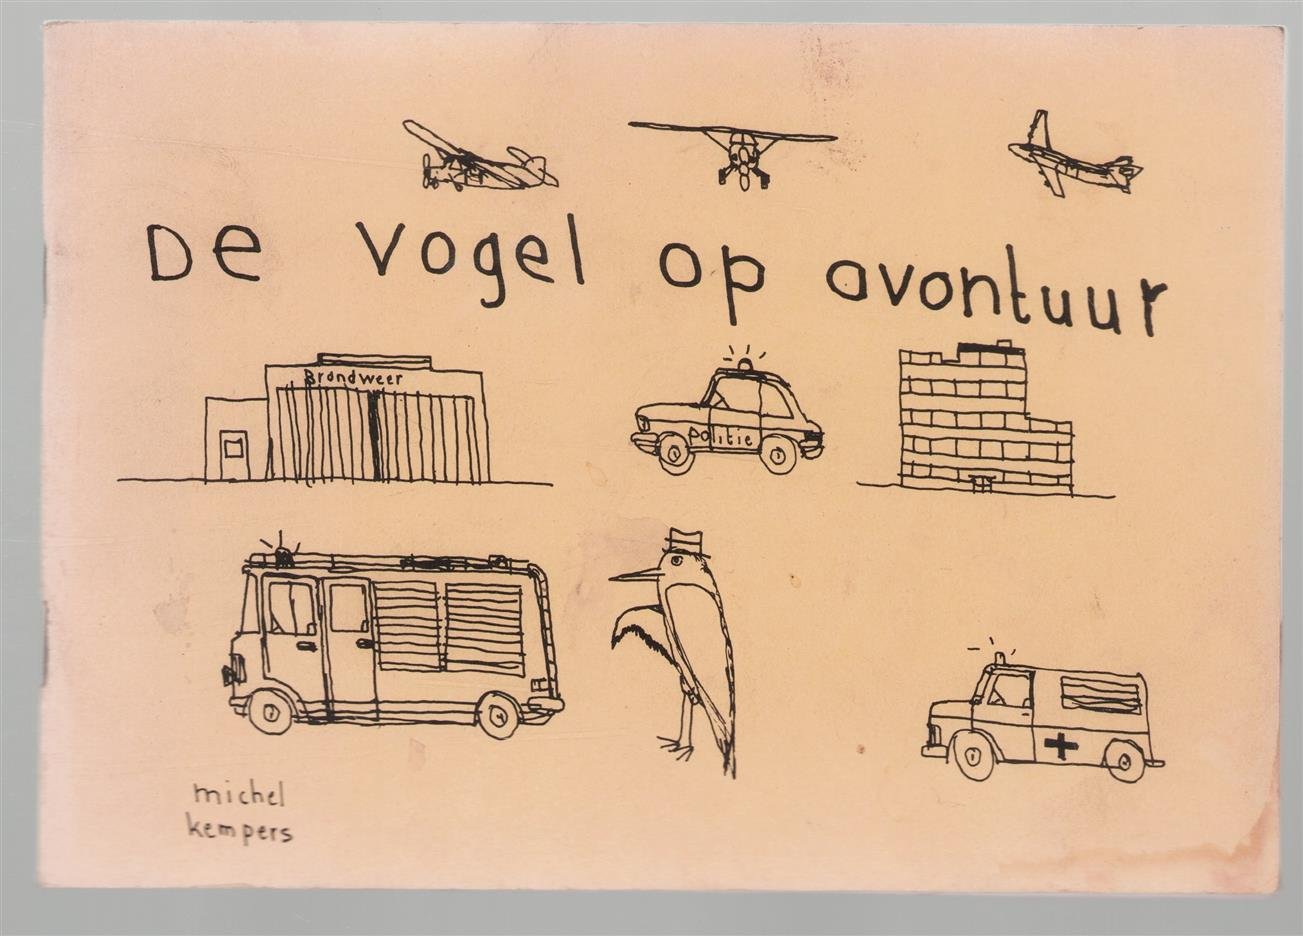 De vogel op avontuur
Brandweer
Politie
michel
kempers